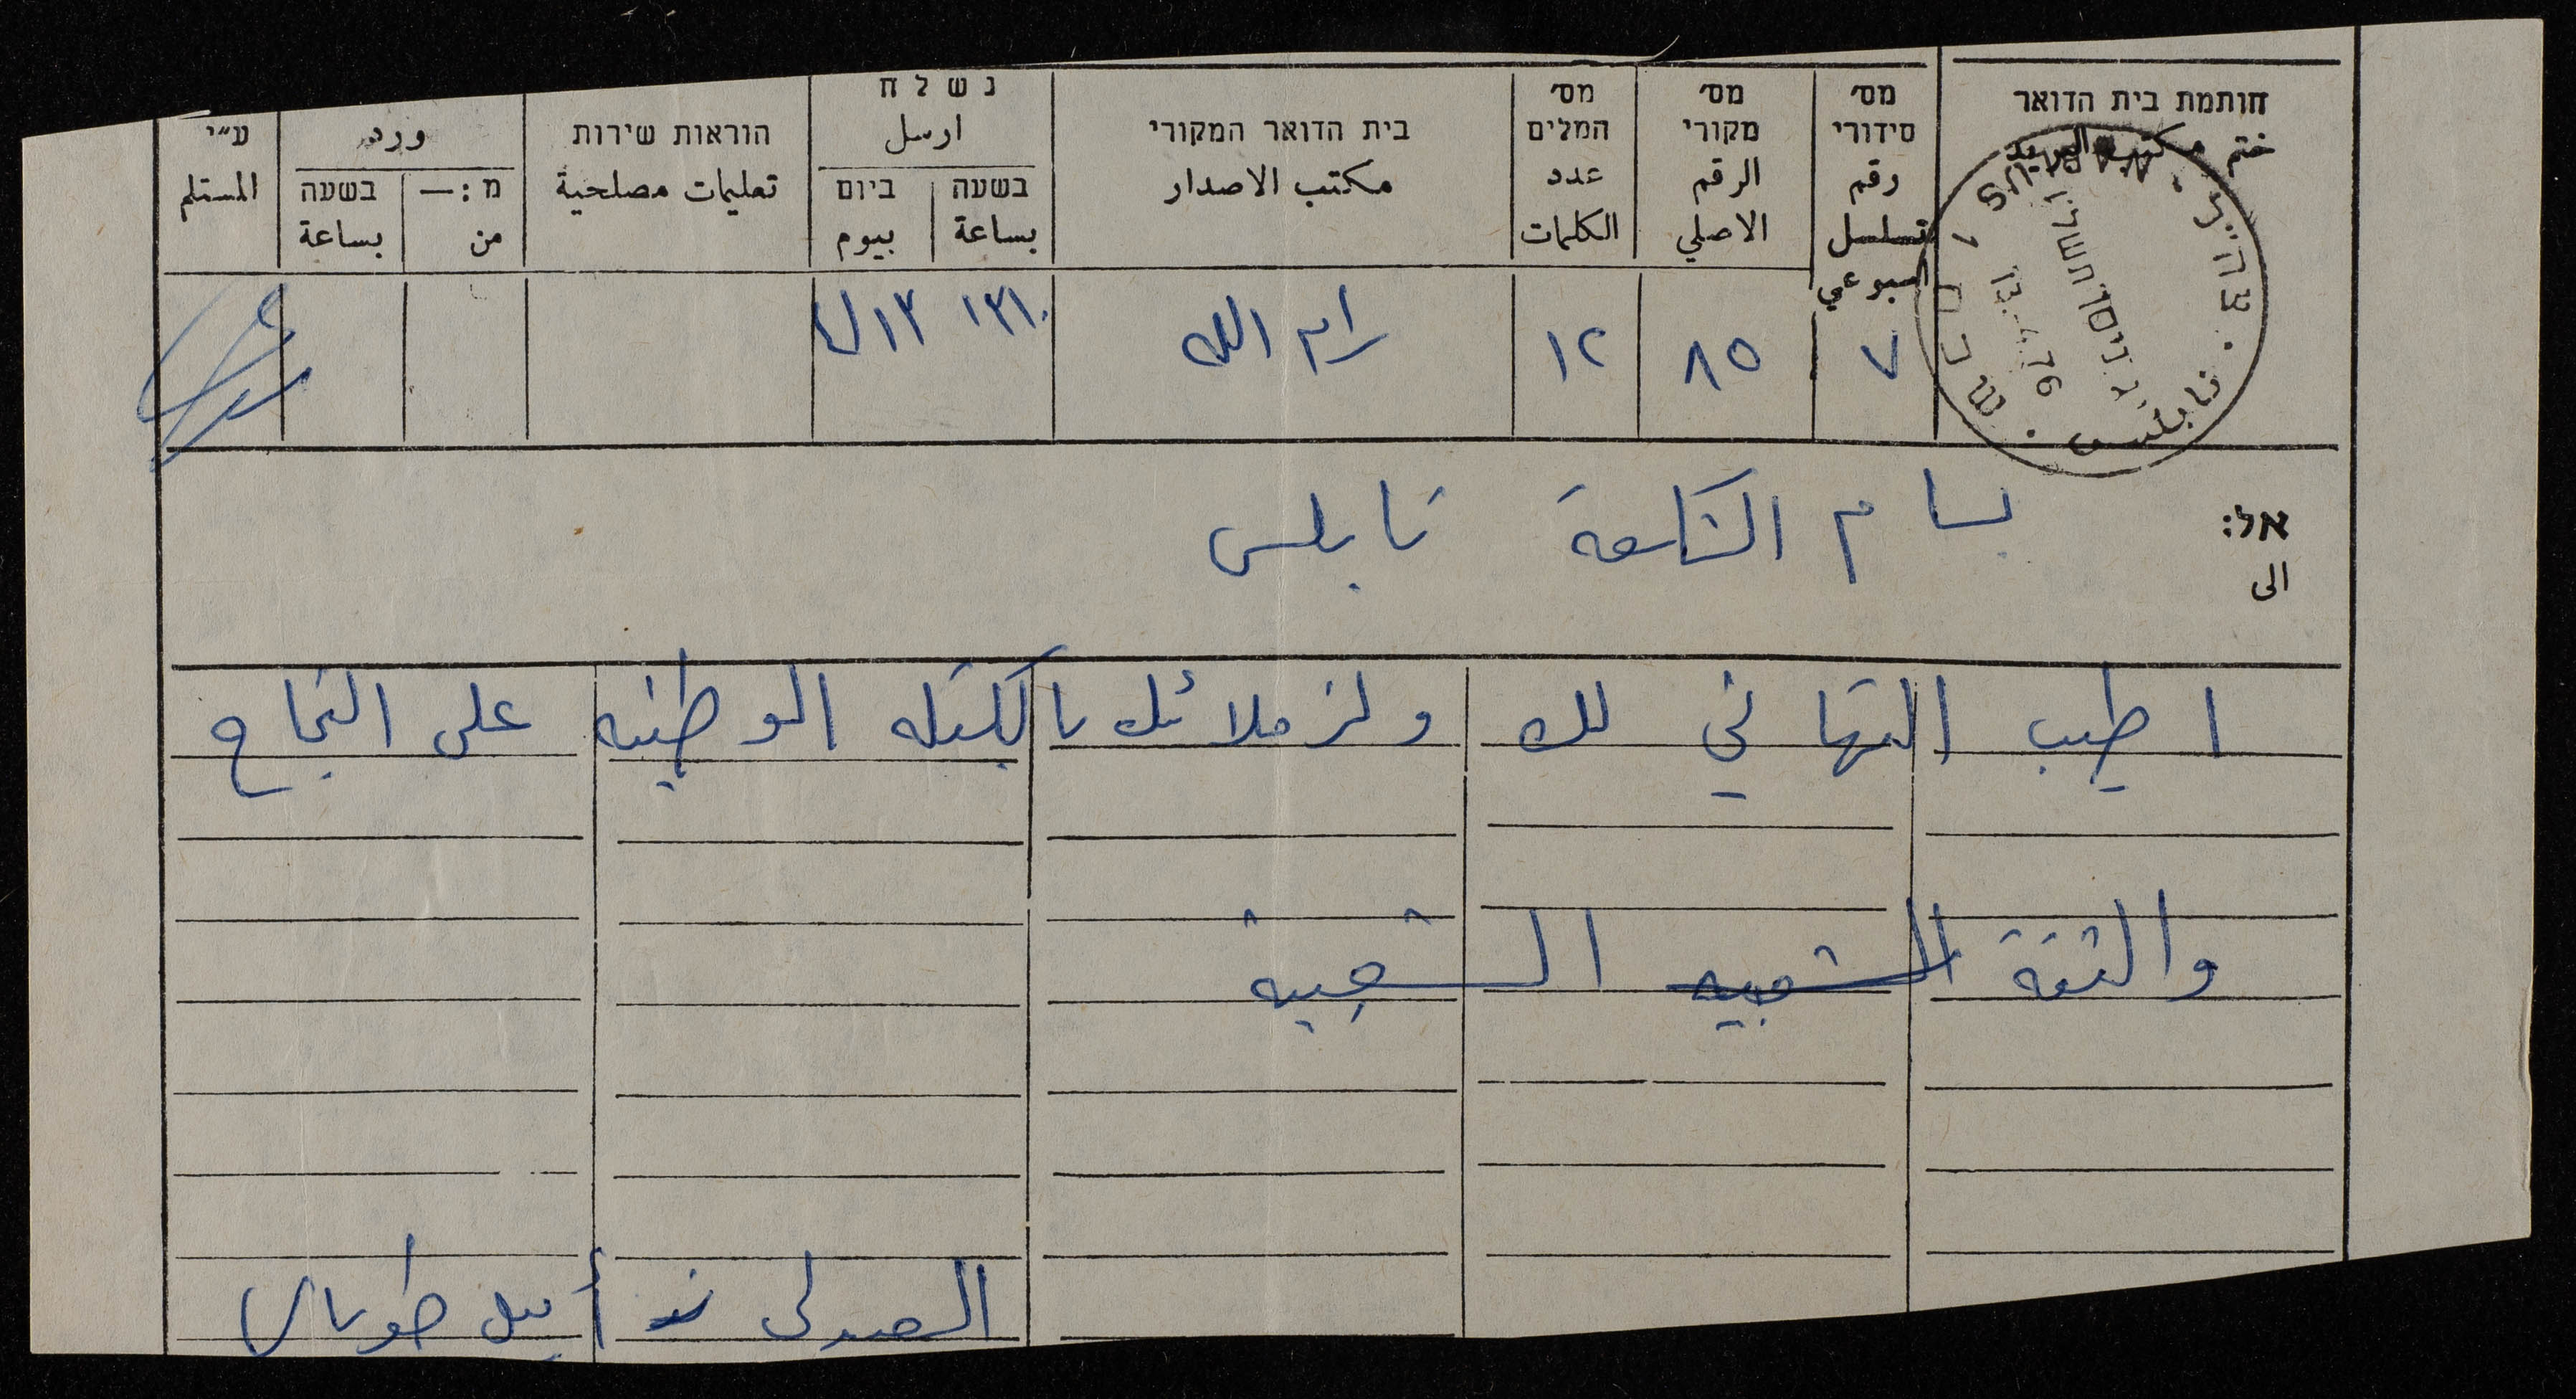 חותמת בית הדואר
ختم مكتب البريد
מס׳ סידורי
رقم تسلسل اسبوعي
מס׳ מקורי
الرقم الاصلي
מס׳ המלים
عدد الكلمات
בית הדואר המקורי
مكتب الاصدار
נשלח
ارسل
בשעה
بساعة
ביום
بيوم
הוראות שירות
تعليمات مصلحية
ورد
מ:—
من
בשעה
بساعة
ע״י
المستلم
שכם SHEKHEM
13.4.76
نابلس
٧
٨٥
١٢
رام الله
١٣١٠
١٣
אל:
الى
بسام الشكعة نابلس
اطيب التهاني لك ولزملائك بالكتله الوطنيه على النجاح
والثقة الشعبيه الشعبية
الصيدلي